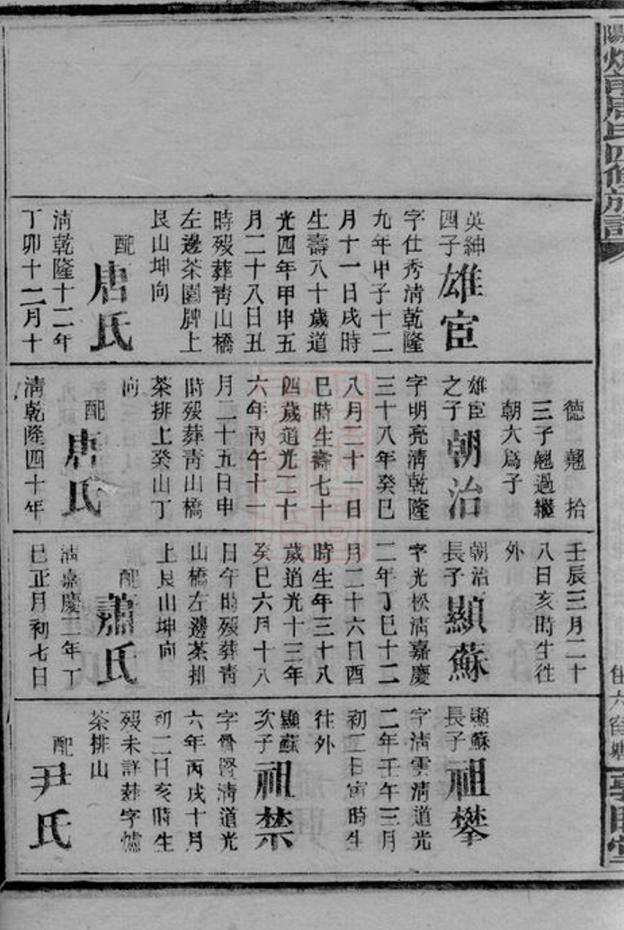 周氏四修族譜
英紳
四子
雄宦
字仕秀清乾隆
九年甲子十二
月十一日戌時
生壽八十歲道
光四年甲申五
月二十八日丑
時殁葬青山橋
左邊茶園牌上
艮山坤向
配
唐氏
清乾隆十二年
丁卯十二月十
德翹拾
三子翹過繼
朝大為子
雄宦
之子
朝治
字明亮清乾隆
三十八年癸巳
八月二十一日
巳時生壽七十
四歲道光二十
六年丙午十一
月二十五日申
時殁葬青山橋
茶排上癸山丁
向
配
唐氏
清乾隆四十年
壬辰三月二十
八日亥時生往
外
朝治
長子
顯蘇
字光松清嘉慶
二年丁巳十二
月二十六日酉
時生年三十八
歲道光十三年
癸巳六月十八
日午時殁葬青
山橋左邊茶排
上艮山坤向
配
蕭氏
清嘉慶二年丁
巳正月初七日
顯蘇
長子
祖攀
字清雲清道光
二年壬午三月
初二日寅時生
往外
顯蘇
次子
祖禁
字晉賢清道光
六年丙戌十月
初二日亥時生
殁未詳葬字爐
茶排山
配
尹氏